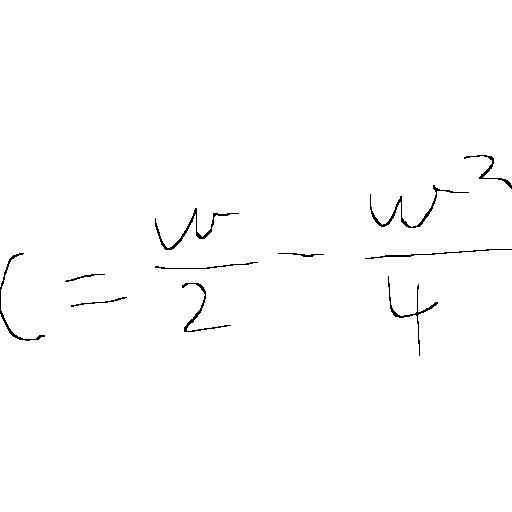 c = \frac{w}{2} - \frac{w^2}{4}